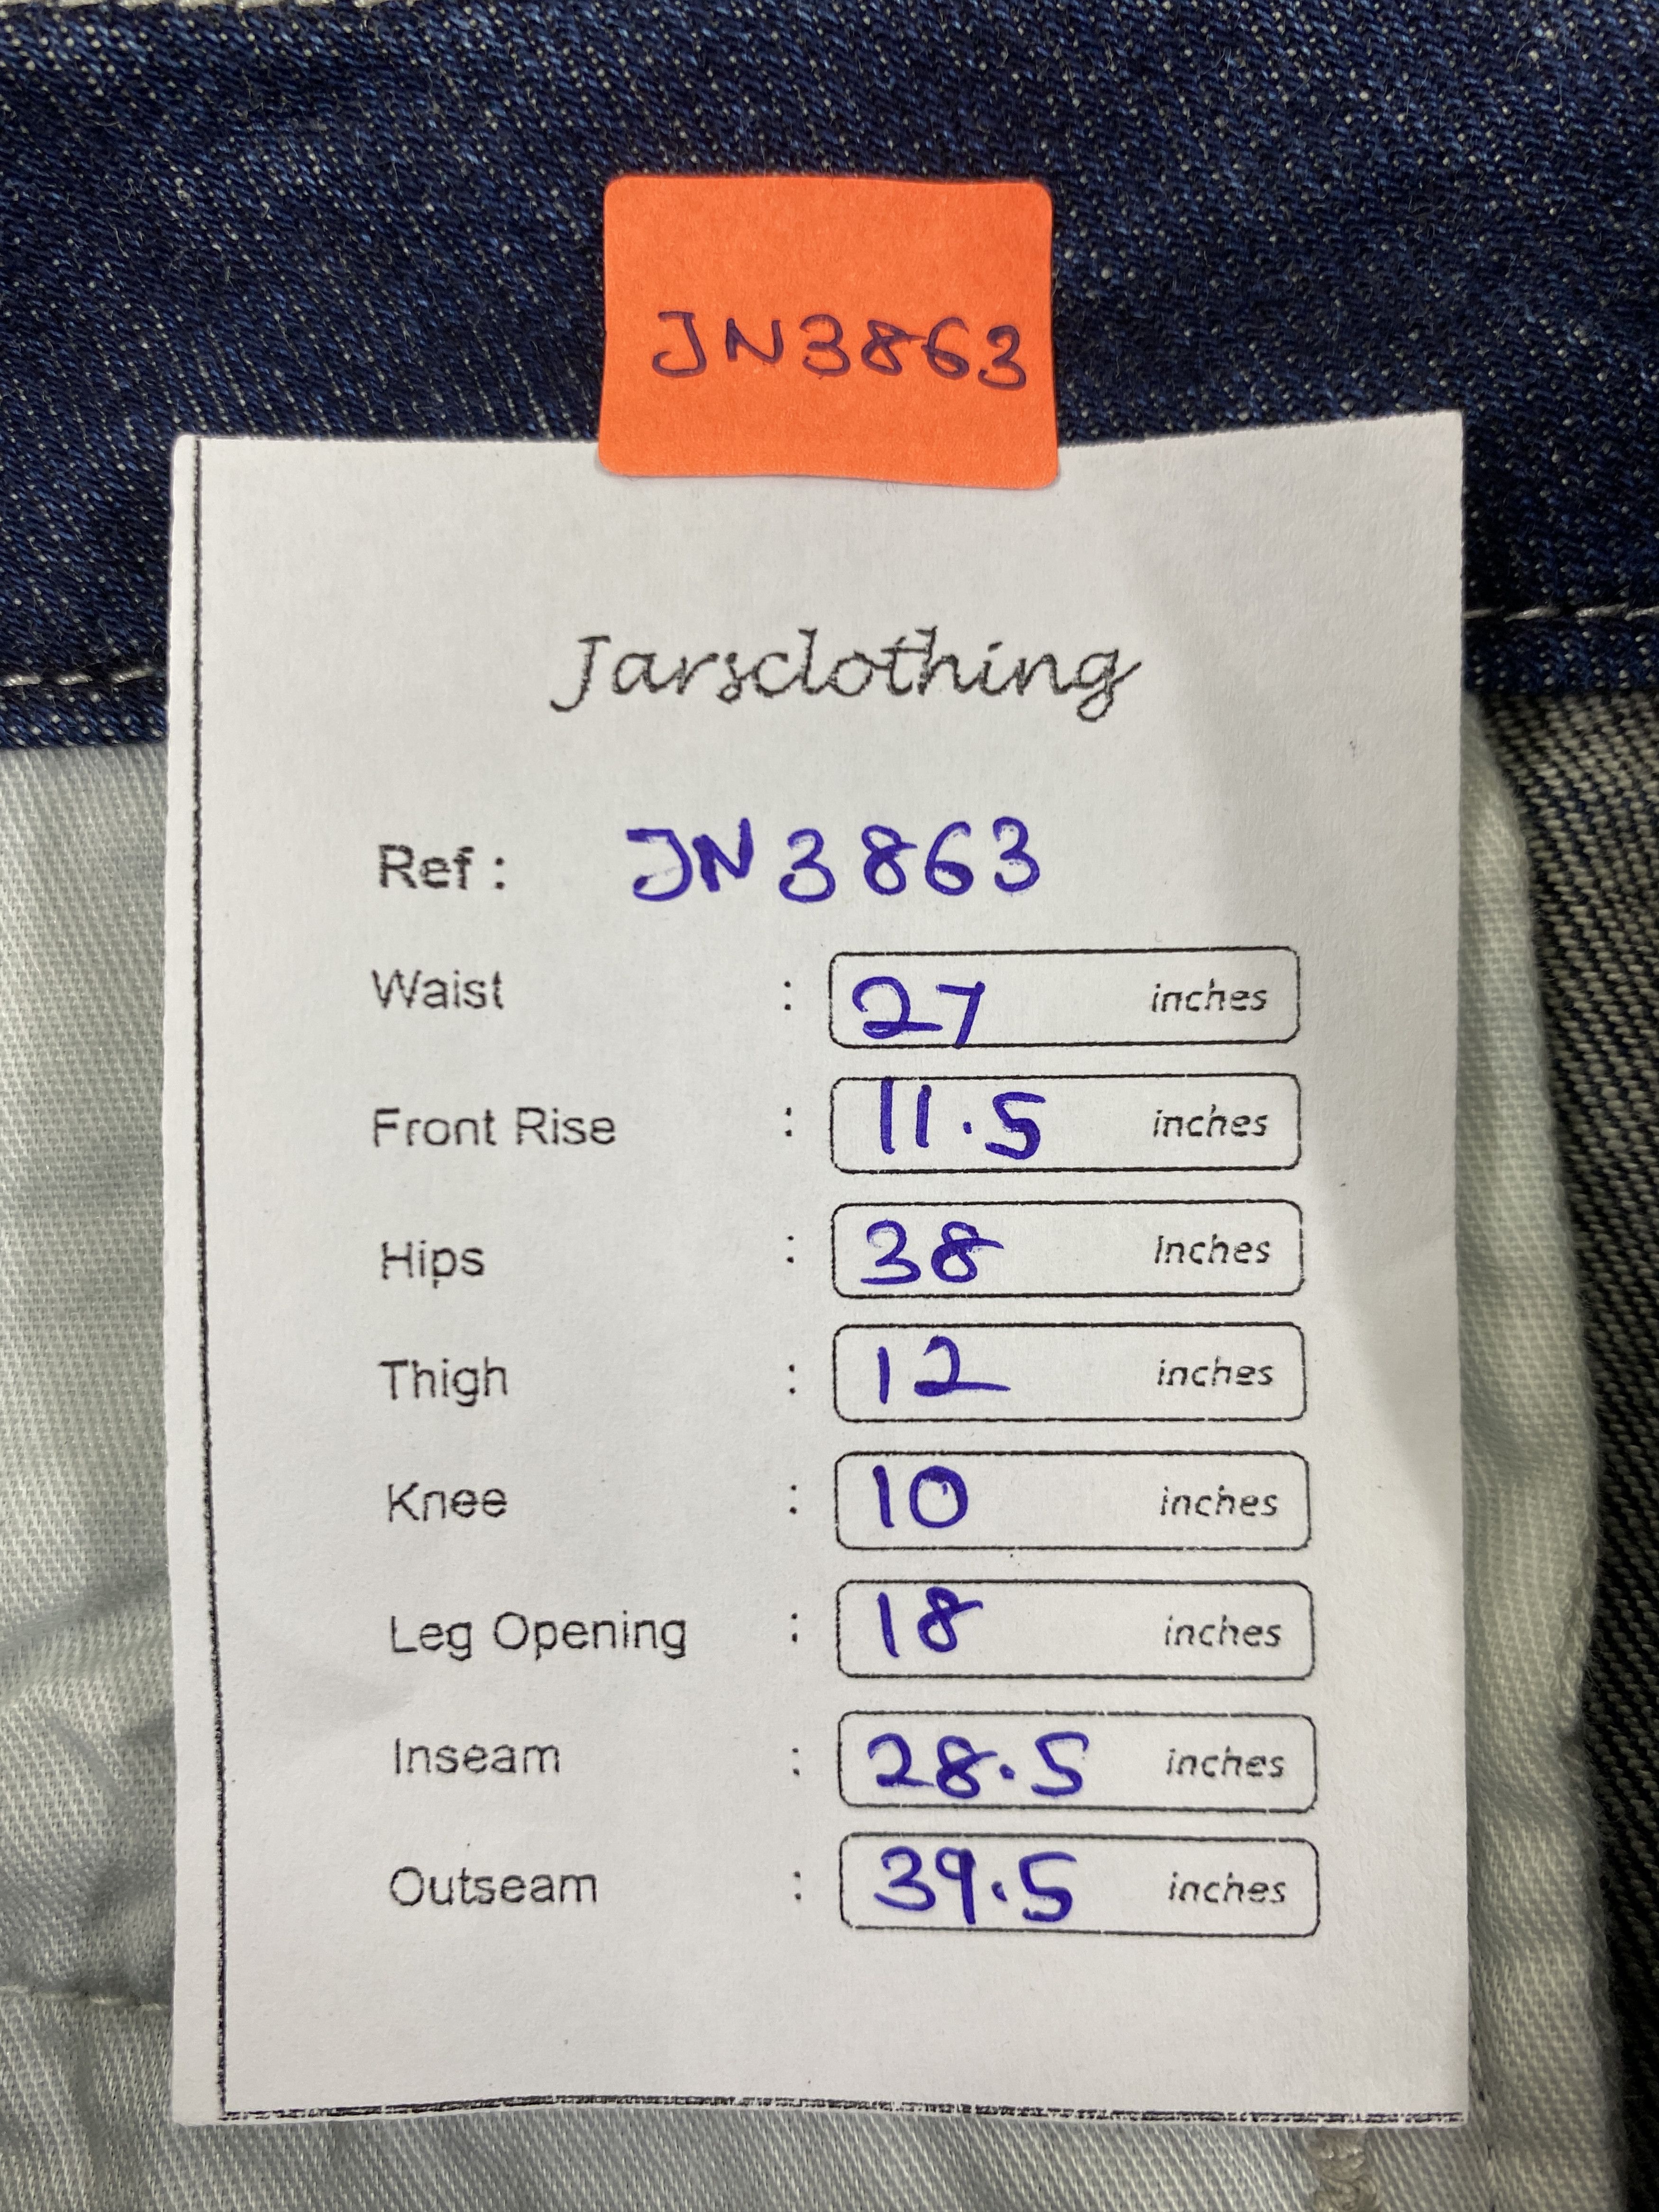 JN3863
Jarsclothing
Ref : JN3863
Waist : 27 inches
Front Rise : 11.5 inches
Hips : 38 Inches
Thigh : 12 inches
Knee : 10 inches
Leg Opening : 18 inches
Inseam : 28.5 inches
Outseam : 39.5 inches